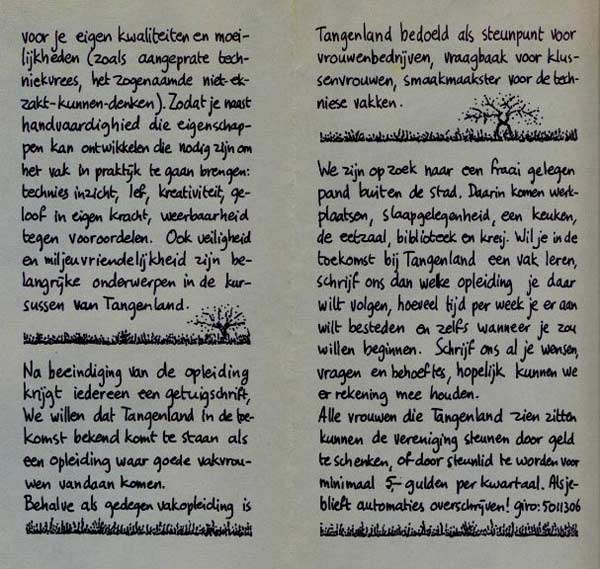 voor je eigen kwaliteiten en moei-
lijkheden (zoals aangeprate tech-
niekvrees, het zogenaamde niet-ek-
zakt-kunnen-denken). Zodat je naast
handvaardighied die eigenschap-
pen kan ontwikkelen die nodig zijn om
het vak in praktijk te gaan brengen:
technies inzicht, lef, kreativiteit, ge-
loof in eigen kracht, weerbaarheid
tegen vooroordelen. Ook veiligheid
en miljeuvriendelijkheid zijn be-
langrijke onderwerpen in de kur-
sussen van Tangenland.
Na beeindiging van de opleiding
krijgt iedereen een getuigschrift,
We willen dat Tangenland in de toe-
komst bekend komt te staan als
een opleiding waar goede vakvrou-
wen vandaan komen.
Behalve als gedegen vakopleiding is
Tangenland bedoeld als steunpunt voor
vrouwenbedrijven, vraagbaak voor klus-
senvrouwen, smaakmaakster voor de tech-
niese vakken.
We zijn op zoek naar een fraai gelegen
pand buiten de stad. Daarin komen werk-
plaatsen, slaapgelegenheid, een keuken,
de eetzaal, biblioteek en kresj. Wil je in de
toekomst bij Tangenland een vak leren,
schrijf ons dan welke opleiding je daar
wilt volgen, hoeveel tijd per week je er aan
wilt besteden en zelfs wanneer je zou
willen beginnen. Schrijf ons al je wensen,
vragen en behoeftes, hopelijk kunnen we
er rekening mee houden.
Alle vrouwen die Tangenland zien zitten
kunnen de vereniging steunen door geld
te schenken, of door steunlid te worden voor
minimaal 5,- gulden per kwartaal. Alsje-
blieft automaties overschrijven! giro: 5011306